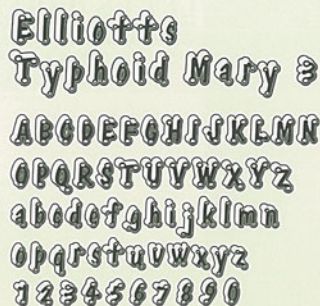 Elliotts
Typhoid Mary 3
ABCDEFGHIJKLMN
OPQRSTUVWXYZ
abcdefghijklmn
opqrstuvwxyz
1234567890